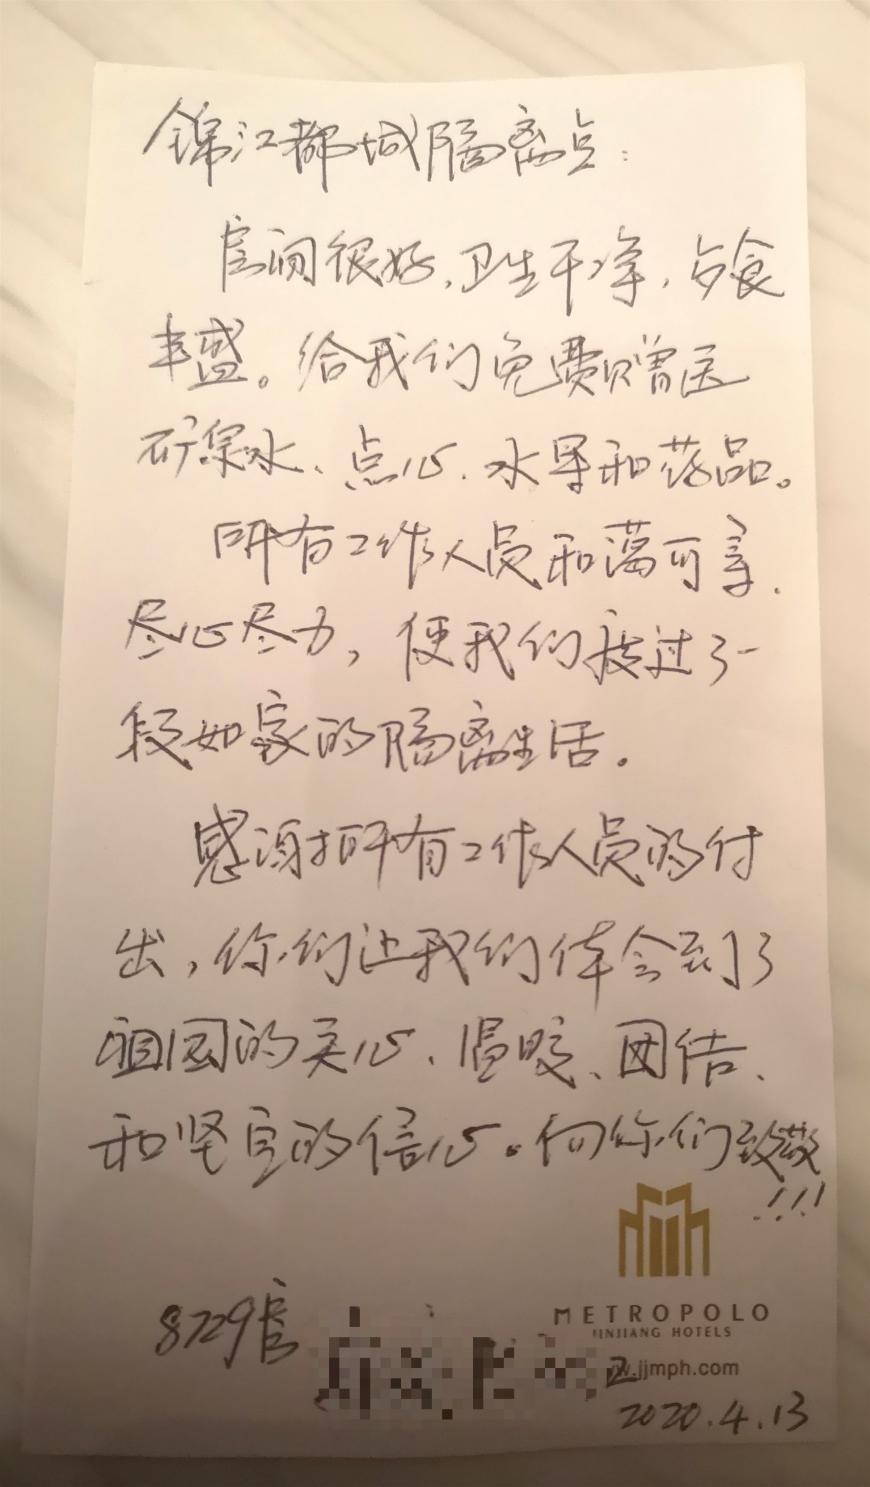 锦江都城隔离点:
房间很好,卫生干净,夕食
丰盛。给我们免费赠送
矿泉水、点心、水果和药品。
所有工作人员和蔼可亲、
尽心尽力,使我们度过了一
段如家的隔离生活。
感谢所有工作人员的付
出,你们让我们体会到了
祖国的关心、温暖、团结、
和坚定的信心。向你们致敬
!!!
METROPOLO
JINJIANG HOTELS
8729房
.jjmph.com
2020.4.13